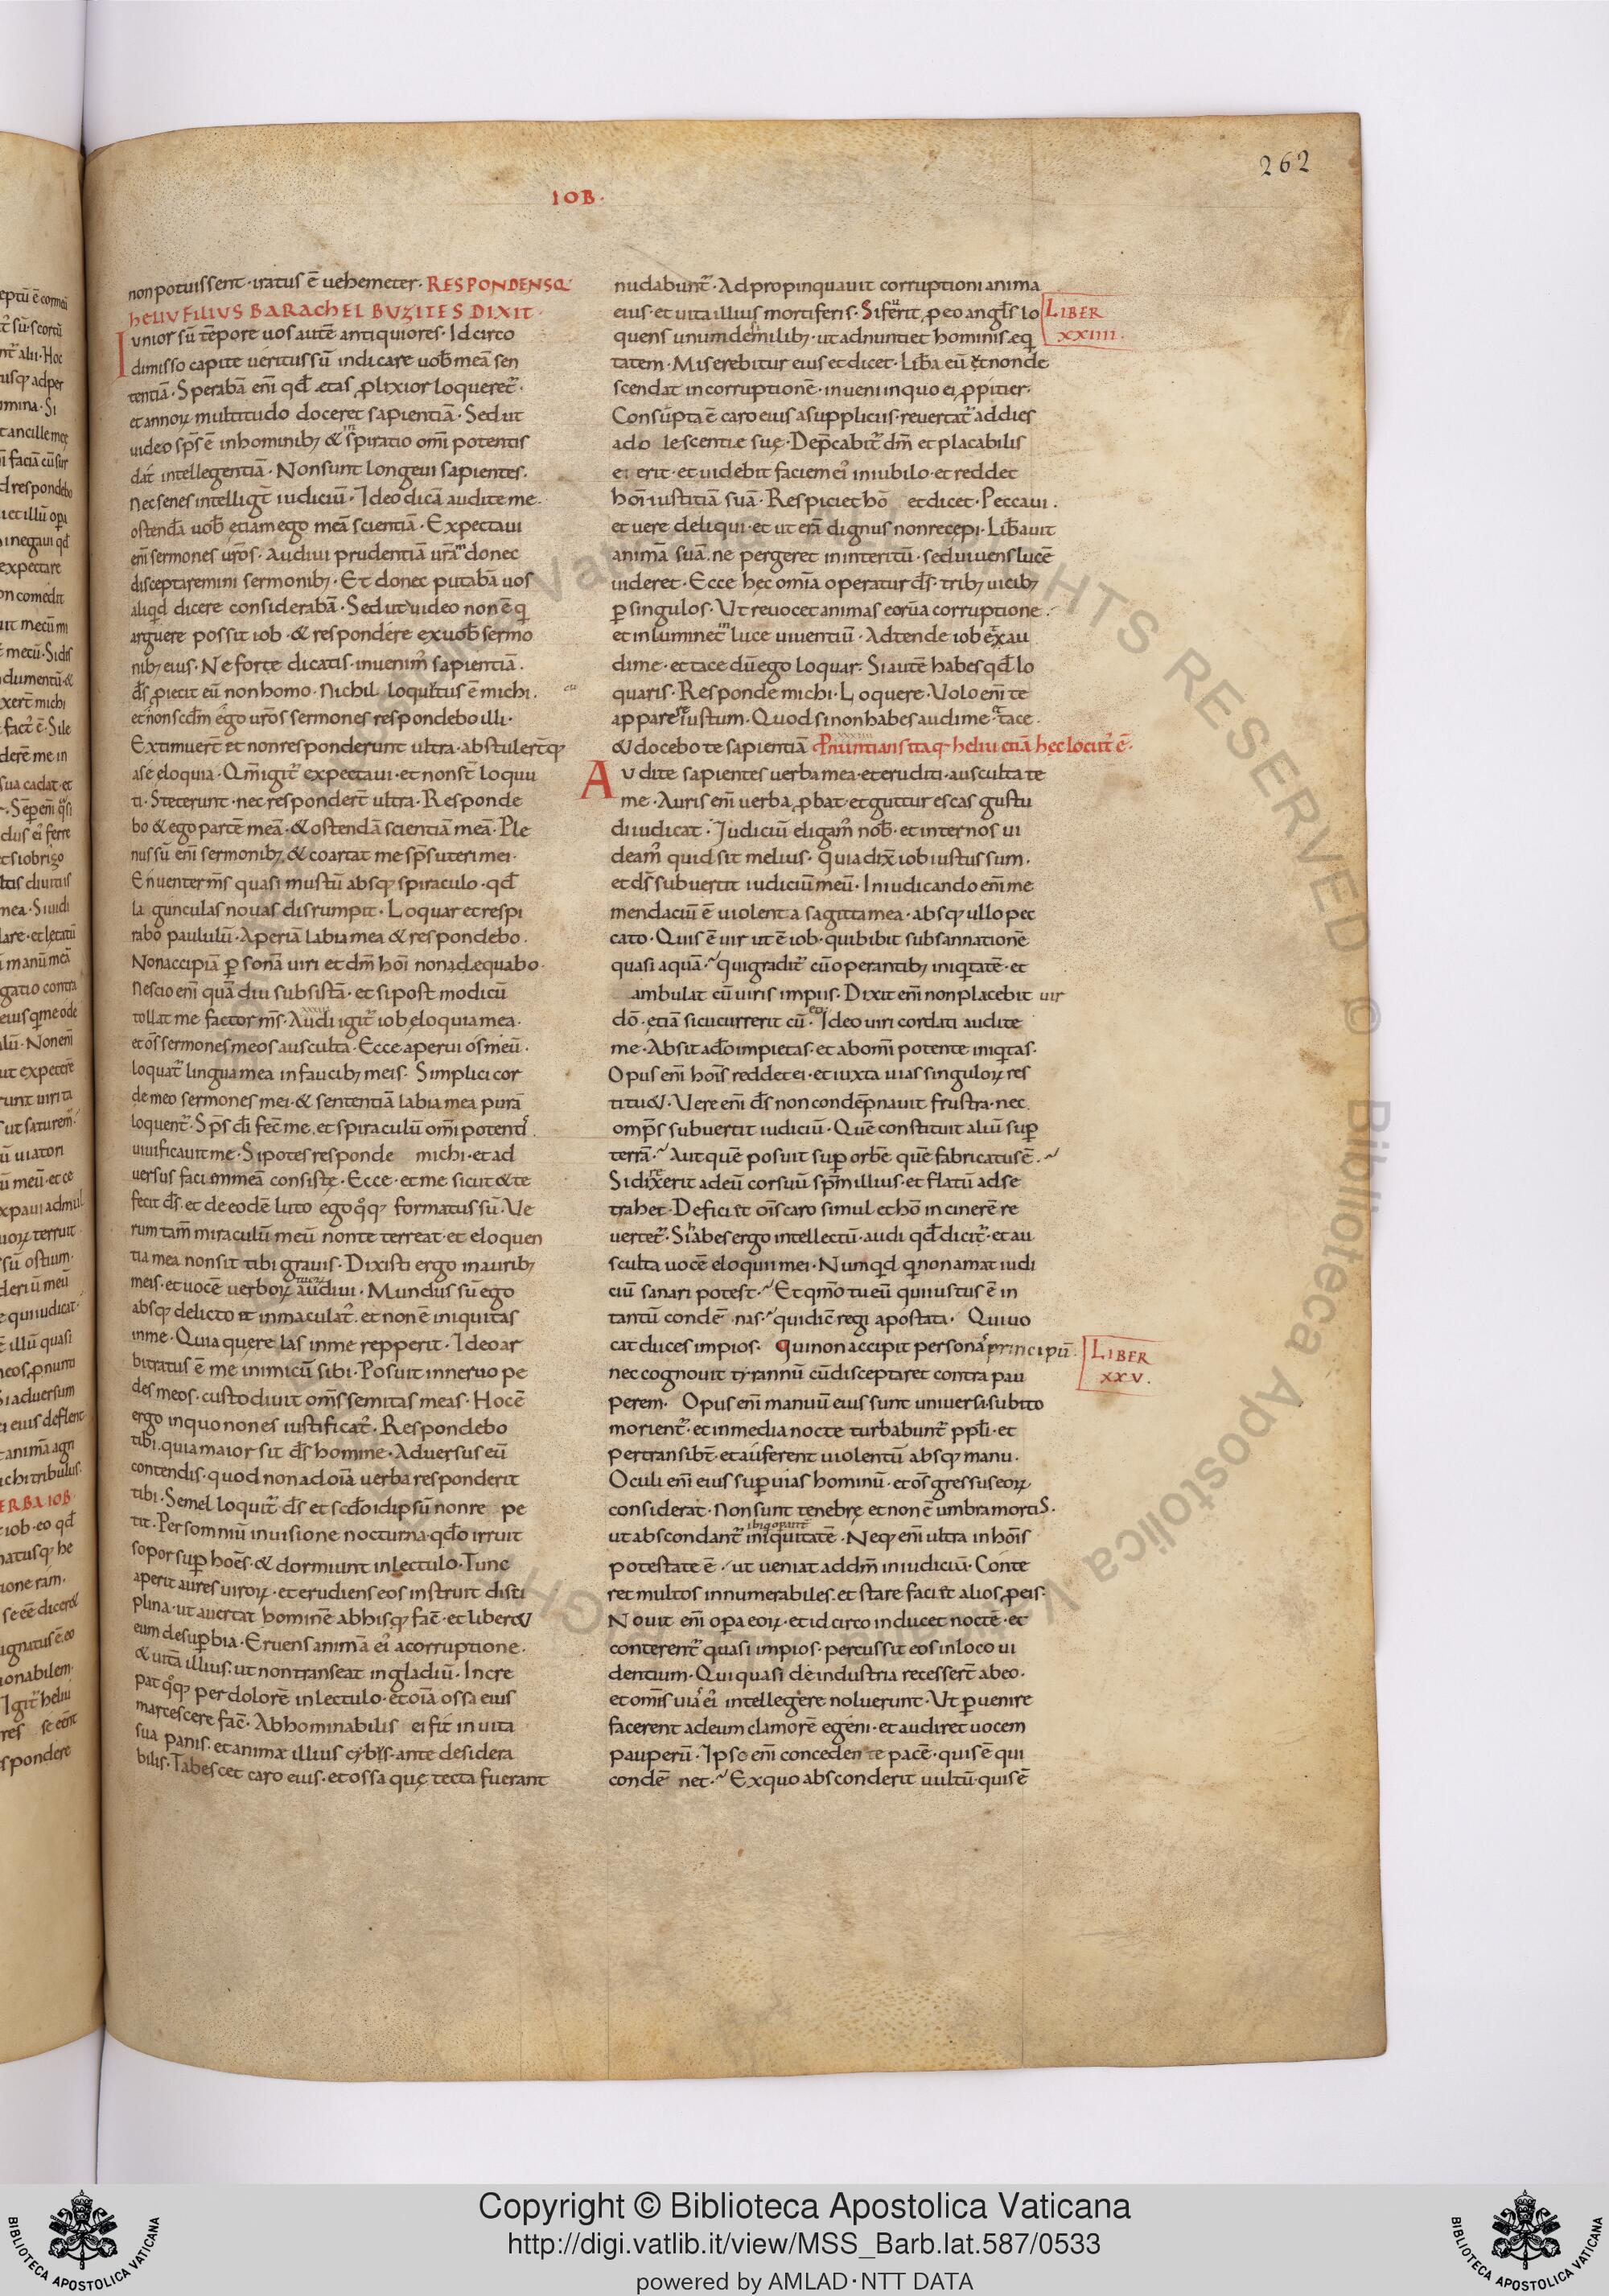 262
IOB·
non potuissent· iratus ē vehemeter· RESPONDENSQ
heliv filivs BARAchEL BUZITES DIXIT·
Iunior sū tēpore vos autē antiquiores· Idcirco
dimisso capite veritus sū indicare vob̄ meā sen
tentiā· Sperabā enī qd̄ ętas prolixior loqueret̃·
et annoꝝ multitudo doceret sapientiā· Sed ut
video sp̄s ē in hominibꝫ & inspiratio om̄i potentis
dat intellegentiā· Non sunt longevi sapientes·
Nec senes intelligt̄ iudiciū· Ideo dicā audite me·
ostendā vob̄ etiam ego meā scientiā· Expectavi
enī sermones vr̄os· Audivi prudentiā vr̄am donec
disceptaremini sermonibꝫ· Et donec putabā vos
aliqd dicere considerabā· Sed ut video non ē q
arguere possit iob· & respondere ex vob̄ sermo
nibꝫ eius· Ne forte dicatis· invenim᾿ sapientiā·
ds̄ proiecit eū non homo· Nichil loqut᾿us ē michi·
et non scd̄m ego vr̄os sermones respondebo illi·
Extimuert̄ et non responderunt ultra· abstulert̄qꝫ
a se eloquia· Qm̄ igit̃ expectavi· et non st̄ loquu
ti· Steterunt· nec respondert̄ ultra· Responde
bo & ego partē meā· & ostendā scientiā meā· Ple
nus sū enī sermonibꝫ· & coartat me sp̄s uteri mei·
En venter ms̄ quasi mustū absqꝫ spiraculo· qd̄
la gunculas novas disrumpit· Loquar et respi
rabo paululū· Aperiā labia mea & respondebo·
Non accipiā personā viri et dm̄ hoī non adequabo·
Nescio enī quādiu subsistā· et si post modicū
tollat me factor ms̄· Audi igit̃ iob eloquia mea·
et os̄ sermones meos ausculta· Ecce aperui os meū·
loquat̃ lingua mea in faucibꝫ meis· Simplici cor
de meo sermones mei· & sententiā labia mea purā
loquent̃· Sp̄s dī fec̄ me· et spiraculū om̄i potent᾿
vivificavit me· Si potes responde michi· et ad
versus faciem meā consistę· Ecce· et me sicut & te
fecit ds̄· et de eodē luto ego qoqꝫ formatus sū· Ve
rum tam̄ miraculū meū non te terreat· et eloquen
tia mea non sit tibi gravis· Dixisti ergo in auribꝫ
meis· et vocē verboꝝ tuoꝝ audivi· Mundus sū ego
absqꝫ delicto et inmaculat᾿· et non ē iniquitas
in me· Quia querelas in me repperit· Ideo ar
bitratus ē me inimicū sibi· Posuit in nervo pe
des meos· custodivit oms̄ semitas meas· Hoc ē
ergo in quo non es iustificat᾿· Respondebo
tibi· quia maior sit ds̄ homine· Adversus eū
contendis· quod non ad oīa verba responderit
tibi· Semel loquit̃ ds̄ et scd̄o id ipsū non re pe
tit· Per somniū in visione nocturna· qd̄o irruit
sopor super hoēs· & dormiunt in lectulo· Tunc
aperit aures viroꝝ· et erudiens eos instruit disci
plina· ut avertat hominē ab hisqꝫ fac̄· et liberet
eum de superbia· Eruens animā ei᾿ a corruptione·
& vitā illius· ut non transeat in gladiū· Incre
pat qoqꝫ per dolorē in lectulo· et oīa ossa eius
marcescere fac̄· Abhominabilis ei fit in vita
sua panis· et animæ illius cybus· ante desidera
bilis· Tabescet caro eius· et ossa quę tecta fuerant
nudabunt̃· Adpropinquavit corruptioni anima
eius· et vita illius mortiferis· Si fuerit pro eo angl̄s lo
LIBER
XXIIII·
quens unum de milibꝫ· ut adnuntiet hominis eq
tatem· Miserebitur eius et dicet· Libā eū et non de
scendat in corruptionē· inveni in quo ei propitier·
Consūpta ē caro eius a suppliciis· revertat̃ ad dies
ado lescentiæ suę· Dep̄cabit̃ dm̄ et placabilis
ei erit· et videbit faciem ei᾿ in iubilo· et reddet
hoī iustitiā suā· Respiciet hō et dicet· Peccavi·
et vere deliqui· et ut erā dignus non recepi· Libavit
animā suā· ne pergeret in interitū· sed vivens lucē
videret· Ecce hęc om̄ia operatur ds̄· tribꝫ vicibꝫ
per singulos· Ut revocet animas eorū a corruptione·
et inluminet luce viventiū· Adtende iob et exau
di me· et tace dū ego loquar· Si autē habes qd̄ lo
quaris· Responde michi· Loquere· Volo enī te
apparere iustum· Quod si non habes audi me· tace·
& docebo te sapientiā Pnuntians itaqꝫ heliu etiā hęc locut᾿ ē·
Audite sapientes verba mea· et eruditi· auscultate
me· Auris enī verba probat· et guttur escas gustu
diiudicat· Iudiciū eligam᾿ nob̄· et inter nos vi
deam᾿ quid sit melius· quia dix̄ iob iustus sum·
et ds̄ subvertit iudiciū meū· In iudicando enī me
mendaciū ē violenta sagitta mea· absqꝫ ullo pec
cato· Quis ē vir ut ē iob· qui bibit subsannationē
quasi aquā· qui gradit̃ cū operantibꝫ iniqtatē· et
ambulat cū viris impiis· Dixit enī non placebit vir
dō· etiā si cucurrerit cū eo· Ideo viri cordati audite
me· Absit a dō impietas· et ab om̄i potente iniqtas·
Opus enī hoīs reddet ei· et iuxta vias singuloꝝ res
tituet· Vere enī ds̄ non condēpnavit frustra· nec
omp̄s subvertit iudiciū· Quē constituit aliū super
terrā· Aut quē posuit super orbē quē fabricatus ē·
Si direxerit ad eū cor suū spm̄ illius· et flatū ad se
trahet· Deficiet oīs caro simul et hō in cinerē re
vertet̃· Si habes ergo intellectū· audi qd̄ dicit̃· et au
sculta vocē eloquii mei· Numqd qi non amat iudi
ciū sanari potest· Et qm̄o tu eū qui iustus ē in
tantū condē nas· qui dic̄ regi apostata· Qui vo
cat duces impios· Qui non accipit personā principū·
LIBER
XXV·
nec cognovit tyrannū cū disceptaret contra pau
perem· Opus enī manuū eius sunt universi· subito
morient̃· et in media nocte turbabunt̃ ppl̄i· et
pertransibt̄· et auferent violentū absqꝫ manu·
Oculi enī eius super vias hominū· et os̄ gressus eoꝝ
considerat· Non sunt tenebrę et non ē umbra mortis·
ut abscondant̃ ibi q opant̃ iniquitatē· Neqꝫ enī ultra in hoīs
potestate ē· ut veniat ad dm̄ in iudiciū· Conte
ret multos innumerabiles· et stare faciet alios pro eis·
Novit enī opera eoꝝ· et idcirco inducet noctē· et
conterent̃ quasi impios· percussit eos in loco vi
dentium· Qui quasi de industria recessert̄ ab eo·
et omīs via᾿ ei᾿ intellegere noluerunt· Ut pervenire
facerent ad eum clamorē egeni· et audiret vocem
pauperū· Ipso enī concedente pacē· quis ē qui
condē net· Ex quo absconderit vultū· quis ē
Copyright © Biblioteca Apostolica Vaticana
http://digi.vatlib.it/view/MSS_Barb.lat.587/0533
powered by AMLAD·NTT DATA